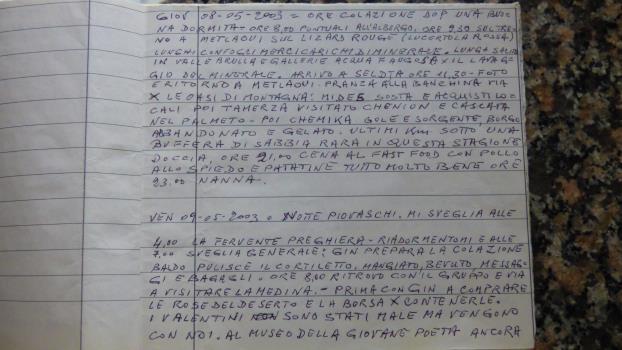 GIOV 08-05-2003 = ORE COLAZIONE DOP UNA BUO-
NA DORMITA - ORE 8,00 PUNTUALI ALL'ALBERGO. ORE 9,30 SUL TRE-
NO A METLAOUI SUL LIZARD ROUGE (LUCERTOLA ROSSA)
LUNGHI CONFOGLI MERCI CARICHI DI MINERALE. LUNGA SALITA
IN VALLE BRULLA E GALLERIE ACQUA FANGOSA X IL LAVAG-
GIO DEL MINERALE. ARRIVO A SELDJA ORE 11,30 - FOTO
E RITORNO A METLAOUI. PRANZO ALLA BANCHINA VIA
X LE OASI DI MONTAGNA: MIDES SOSTA E ACQUISTI LO-
CALI POI TAMERZA VISITATO CHENION E CASCATA
NEL PALMETO - POI CHEMIKA GOLE E SORGENTE, BORGO
ABBANDONATO E GELATO. ULTIMI Km SOTTO UNA
BUFFERA DI SABBIA RARA IN QUESTA STAGIONE
DOCCIA, ORE 21,00 CENA AL FAST FOOD CON POLLO
ALLO SPIEDO E PATATINE TUTTO MOLTO BENE ORE
23.00 NANNA.
VEN 09-05-2003 = NOTTE PIOVASCHI. MI SVEGLIA ALLE
4,00 LA FERVENTE PREGHIERA - RIADDORMENTOMI E ALLE
7,00 SVEGLIA GENERALE: GIN PREPARA LA COLAZIONE
BALDO PULISCE IL CORTILETTO. MANGIATO, BEVUTO, MESSAG-
GI E BAGAGLI. ORE 8,00 RITROVO CON IL GRUPPO E VIA
A VISITARE LA MEDINA. - PRIMA CON GIN A COMPRARE
LE ROSE DEL DESERTO E LA BORSA X CONTENERLE.
I VALENTINI SONO STATI MALE MA VENGONO
CON NOI. AL MUSEO DELLA GIOVANE POETA ANCORA